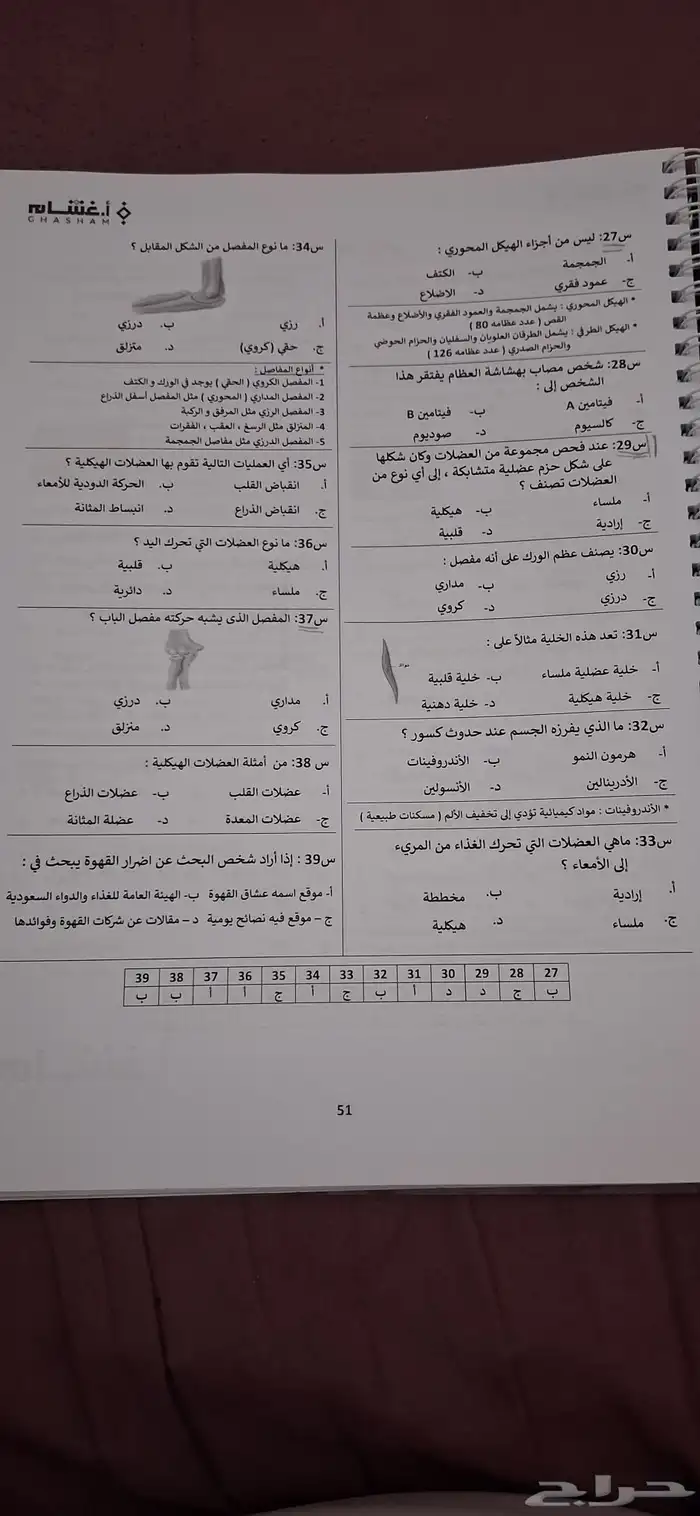 أ.غشام
GHASHAM
س27: ليس من أجزاء الهيكل المحوري :
أ- الجمجمة ب- الكتف
ج- عمود فقري د- الاضلاع
* الهيكل المحوري : يشمل الجمجمة والعمود الفقري والأضلاع وعظمة
القص ( عدد عظامه 80 )
* الهيكل الطرفي : يشمل الطرفان العلويان والسفليان والحزام الحوضي
والحزام الصدري ( عدد عظامه 126 )
س28: شخص مصاب بهشاشة العظام يفتقر هذا
الشخص إلى :
أ- فيتامين A ب- فيتامين B
ج- كالسيوم د- صوديوم
س29: عند فحص مجموعة من العضلات وكان شكلها
على شكل حزم عضلية متشابكة ، إلى أي نوع من
العضلات تصنف ؟
أ- ملساء ب- هيكلية
ج- إرادية د- قلبية
س30: يصنف عظم الورك على أنه مفصل :
أ- رزي ب- مداري
ج- درزي د- كروي
س31: تعد هذه الخلية مثالاً على :
أ- خلية عضلية ملساء ب- خلية قلبية
ج- خلية هيكلية د- خلية دهنية
س32: ما الذي يفرزه الجسم عند حدوث كسور ؟
أ- هرمون النمو ب- الأندروفينات
ج- الأدرينالين د- الأنسولين
* الأندروفينات : مواد كيميائية تؤدي إلى تخفيف الألم ( مسكنات طبيعية )
س33: ماهي العضلات التي تحرك الغذاء من المريء
إلى الأمعاء ؟
أ. إرادية ب. مخططة
ج. ملساء د. هيكلية
س34: ما نوع المفصل من الشكل المقابل ؟
أ. رزي ب. درزي
ج. حقي (كروي) د. منزلق
* أنواع المفاصل :
1- المفصل الكروي ( الحقي ) يوجد في الورك و الكتف
2- المفصل المداري ( المحوري ) مثل المفصل أسفل الذراع
3- المفصل الرزي مثل المرفق و الركبة
4- المنزلق مثل الرسغ ، العقب ، الفقرات
5- المفصل الدرزي مثل مفاصل الجمجمة
س35: أي العمليات التالية تقوم بها العضلات الهيكلية ؟
أ. انقباض القلب ب. الحركة الدودية للأمعاء
ج. انقباض الذراع د. انبساط المثانة
س36: ما نوع العضلات التي تحرك اليد ؟
أ. هيكلية ب. قلبية
ج. ملساء د. دائرية
س37: المفصل الذى يشبه حركته مفصل الباب ؟
أ. مداري ب. درزي
ج. كروي د. منزلق
س 38: من أمثلة العضلات الهيكلية :
أ- عضلات القلب ب- عضلات الذراع
ج- عضلات المعدة د- عضلة المثانة
س39 : إذا أراد شخص البحث عن اضرار القهوة يبحث في :
أ- موقع اسمه عشاق القهوة ب- الهيئة العامة للغذاء والدواء السعودية
ج – موقع فيه نصائح يومية د – مقالات عن شركات القهوة وفوائدها
39 38 37 36 35 34 33 32 31 30 29 28 27
ب ب أ أ ج أ ج ب أ د د ج ب
51
حراج